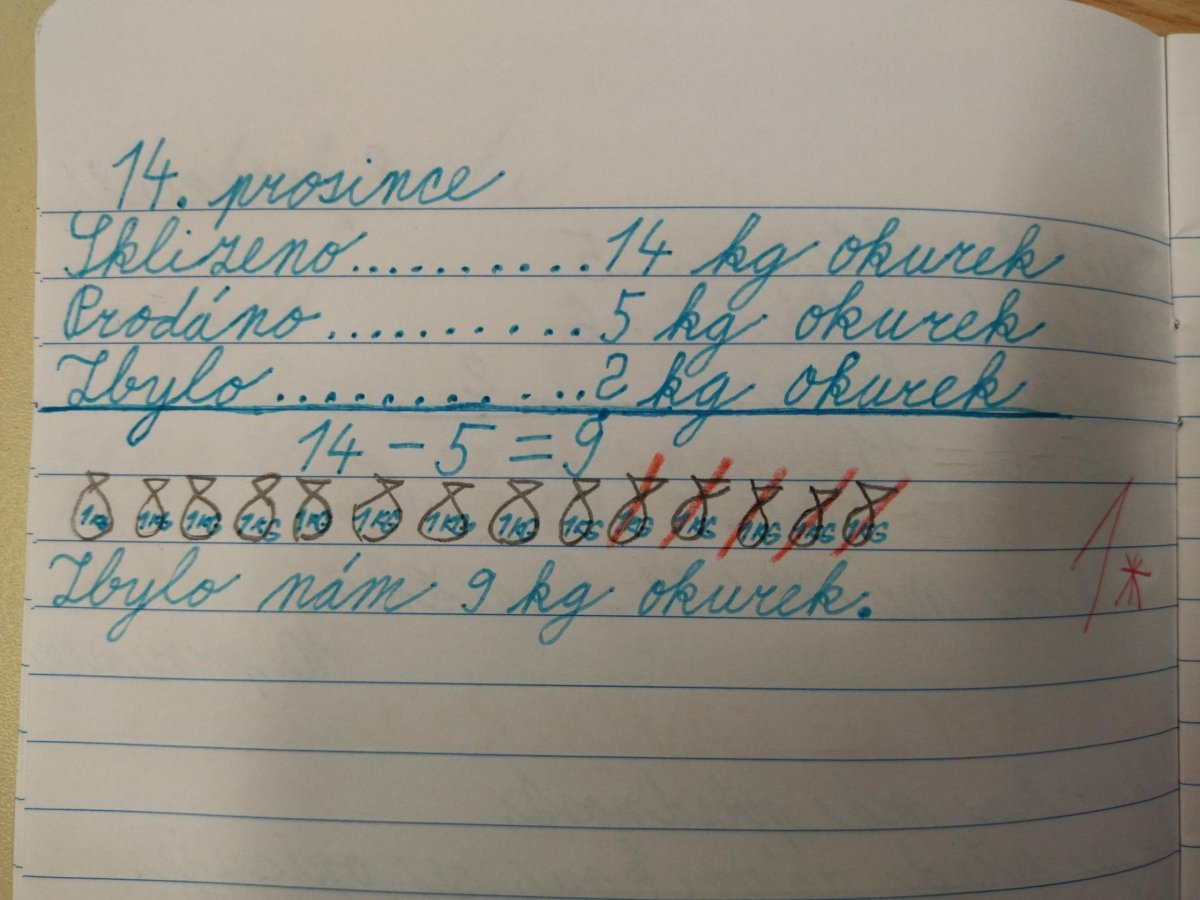 14. prosince
Sklizeno...........14 kg okurek
Prodáno...........5 kg okurek
Zbylo............? kg okurek
14 - 5 = 9
1KG 1KG 1KG 1KG 1KG 1KG 1KG 1KG 1KG 1KG 1KG 1KG 1KG 1KG
Zbylo nám 9 kg okurek.
1*